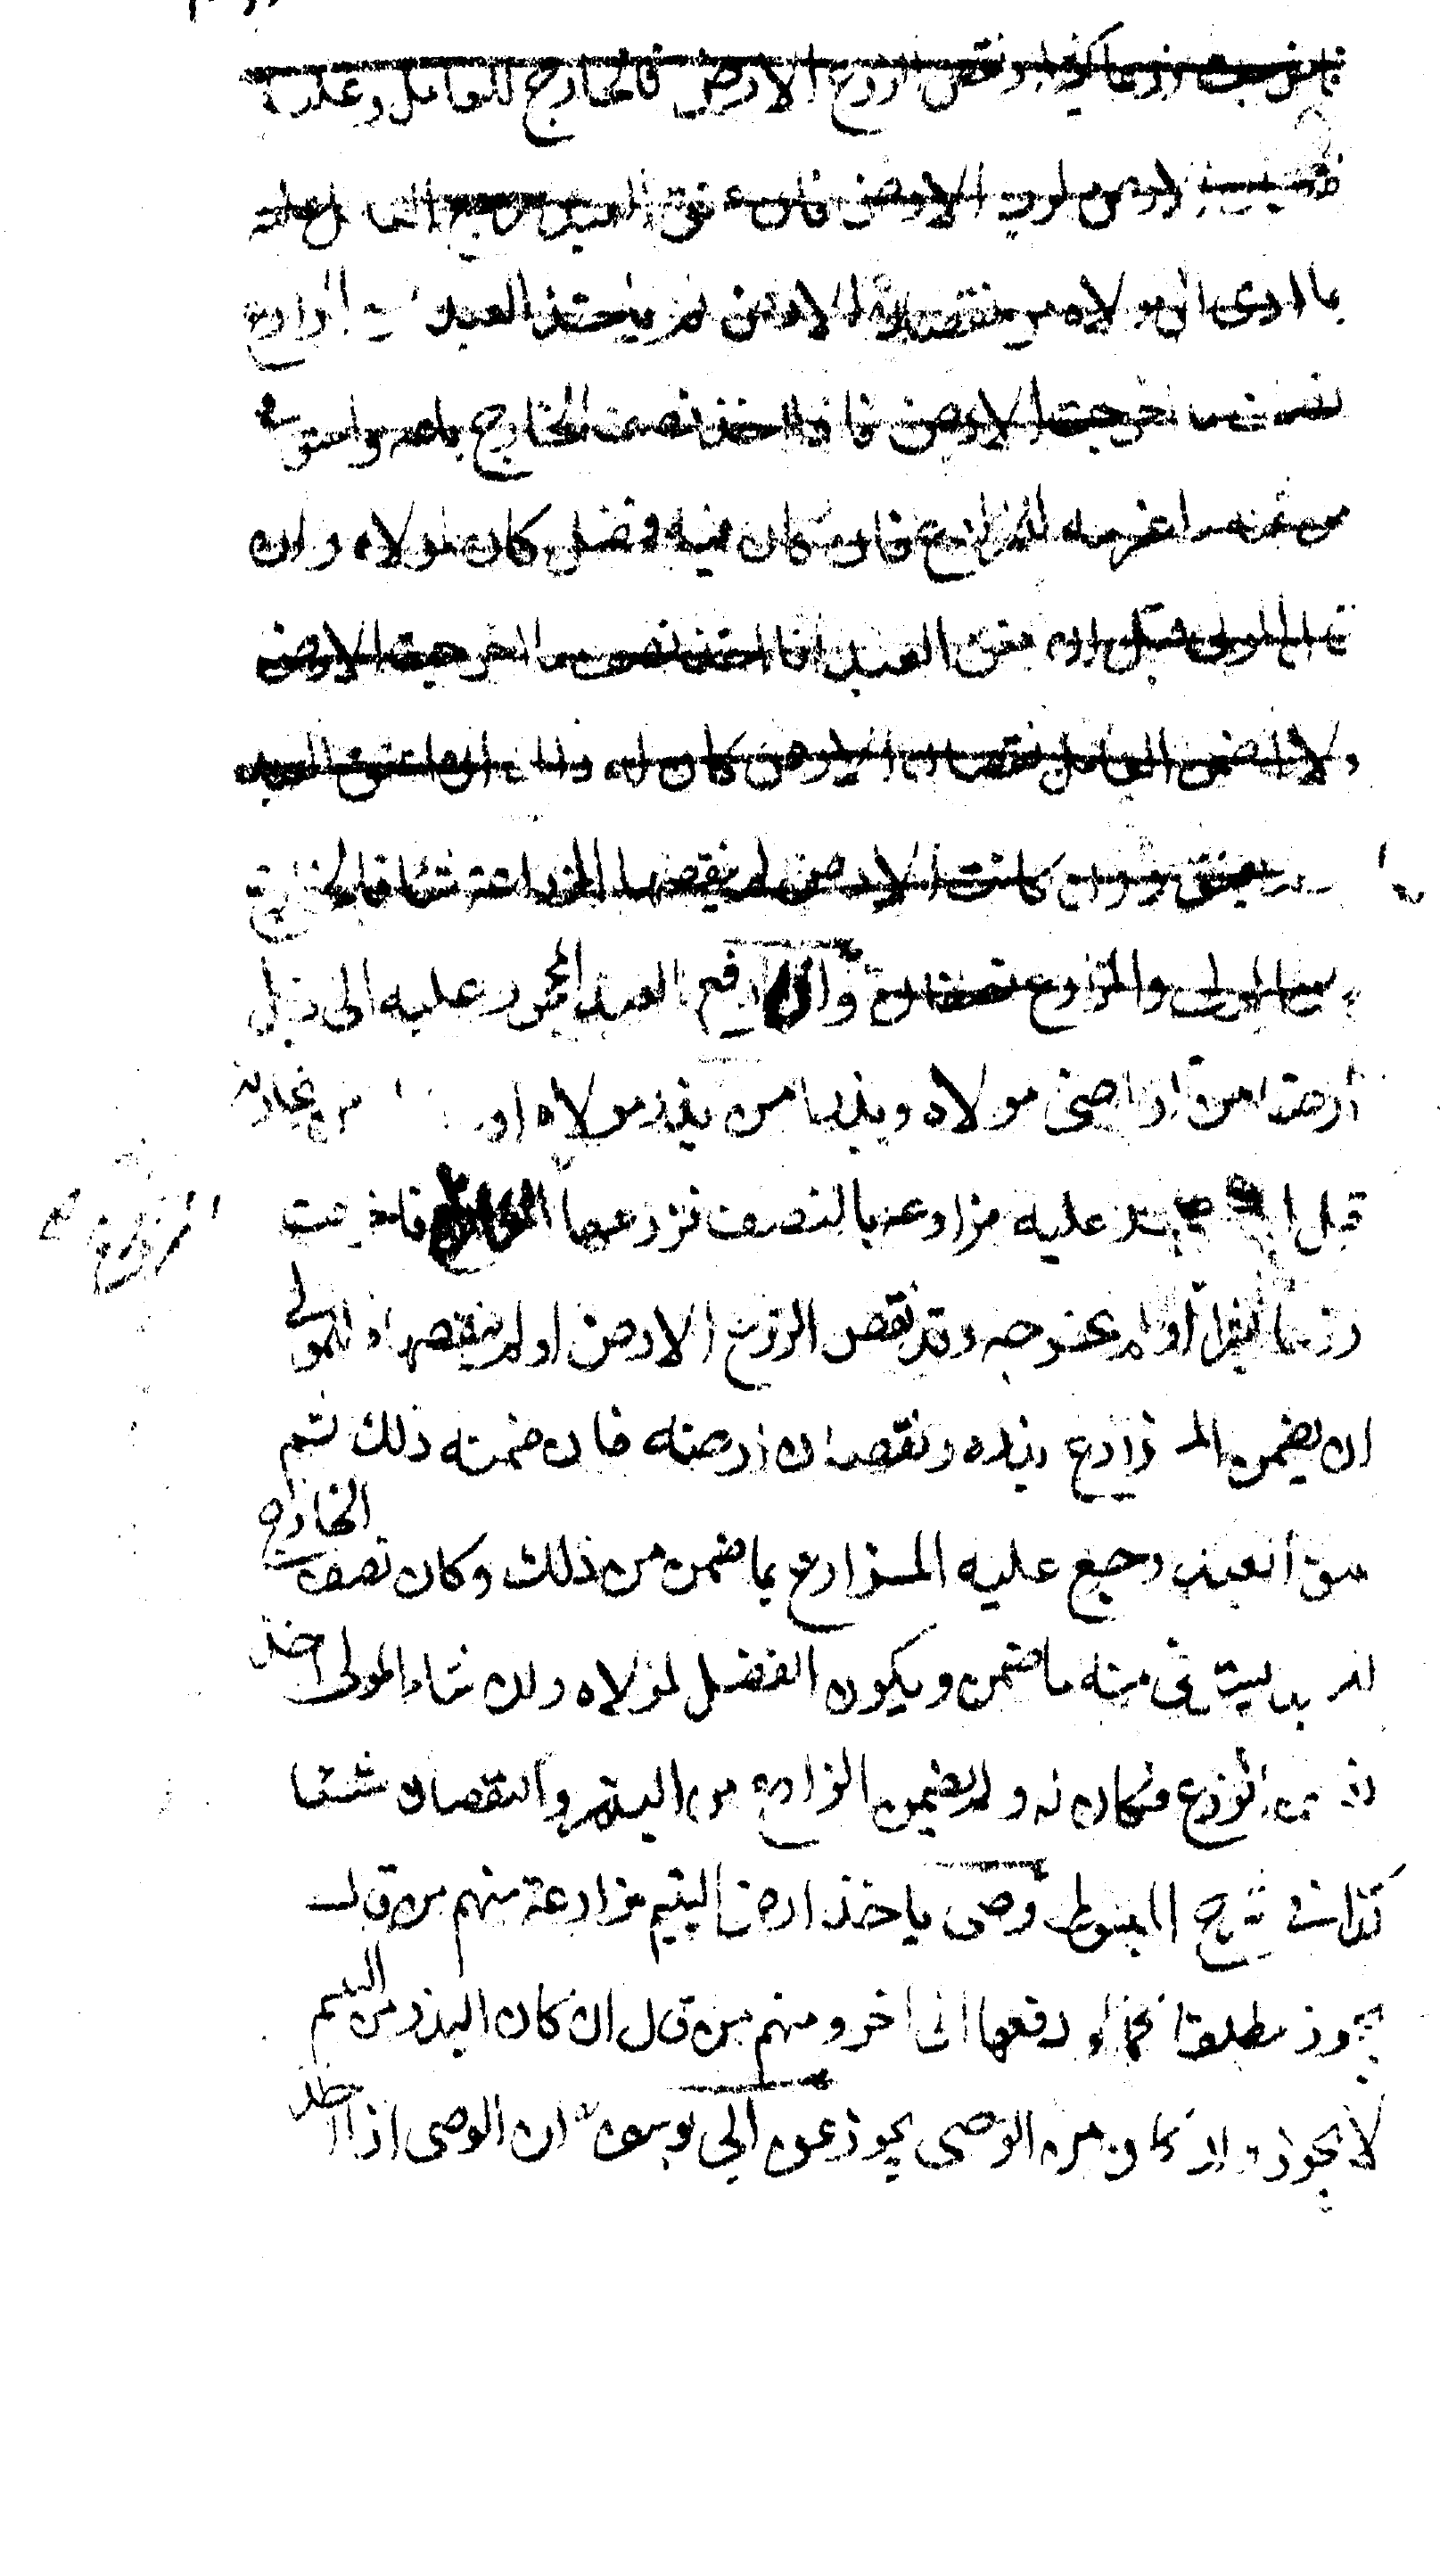 فاخرجت زرعا كثيرا ونقص الزرع الارض فالخارج للعامل وعليه
نقصان الارض لرب الارض فان عتق العبد رجع العامل عليه
بما ادى الى مولاه من نقصان الارض ثم ياخذ العبد من المزارع
نصف ما اخرجت الارض فاذا اخذ نصف الخارج باعه واستوفى
من ثمنه ما غرمه للمزارع فان كان فيه فضل كان لمولاه وان
قال المولى قبل ان يعتق العبد انا اخذ نصف ما اخرجت الارض
ولا اضمن العامل نقصان الارض كان له ذلك ان اعتق العبد
او لم يعتق وان كانت الارض لم ينقصها الزراعة شيئا فالخارج
بين المولى والمزارع نصفان وان دفع العبد المحجور عليه الى رجل
ارضا من اراضى مولاه وبذرا من بذر مولاه او من تجارته
قبل ان يحجر عليه مزارعة بالنصف فزرعها المزارع فاخرجت
زرعا كثيرا او لم يخرجه وقد نقص الزرع الارض او لم ينقصها فللمولى
ان يضمن المزارع بذره ونقصان ارضه فان ضمنه ذلك ثم
عتق العبد رجع عليه المزارع بما ضمن من ذلك وكان نصف الخارج
للعبد يستوفى منه ما ضمن ويكون الفضل لمولاه وان شاء المولى اخذ
نصف الزرع فكان له ولم يضمن المزارع من البذر والنقصان شيئا
كذا فى شرح المبسوط وصى ياخذ ارض اليتيم مزارعة منهم من قال
يجوز مطلقا كما لو دفعها الى اخر ومنهم من قال ان كان البذر من اليتيم
لا يجوز وان كان من الوصى يجوز عن ابى يوسف ان الوصى اذا اخذ